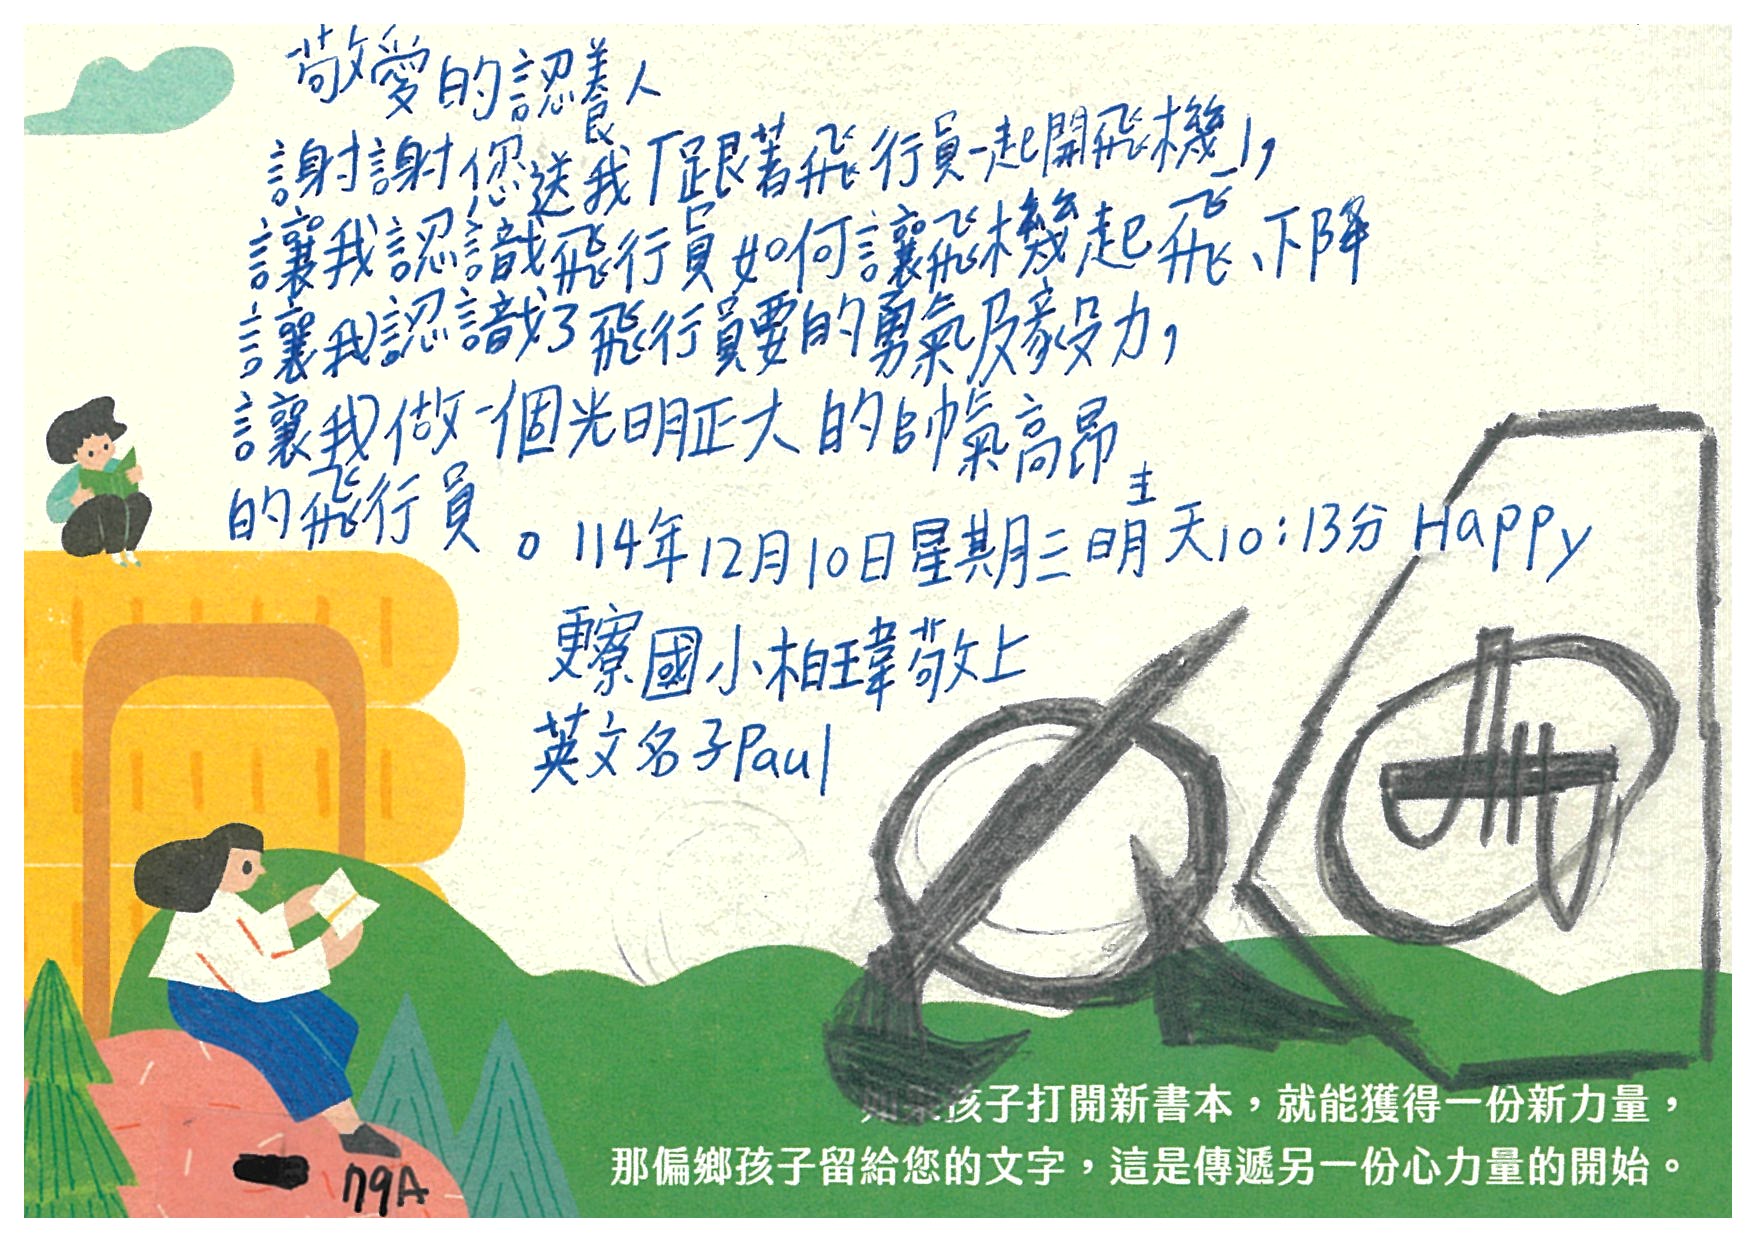 敬愛的認養人
謝謝您送我「跟著飛行員一起開飛機」,
讓我認識飛行員如何讓飛機起飛、下降
讓我認識了飛行員要的勇氣及毅力,
讓我做一個光明正大的帥氣高昂
的飛行員。114年12月10日星期三明天10:13分 Happy
更寮國小柏瑋敬上
英文名子Paul
孩子打開新書本，就能獲得一份新力量，
那偏鄉孩子留給您的文字，這是傳遞另一份心力量的開始。
179A